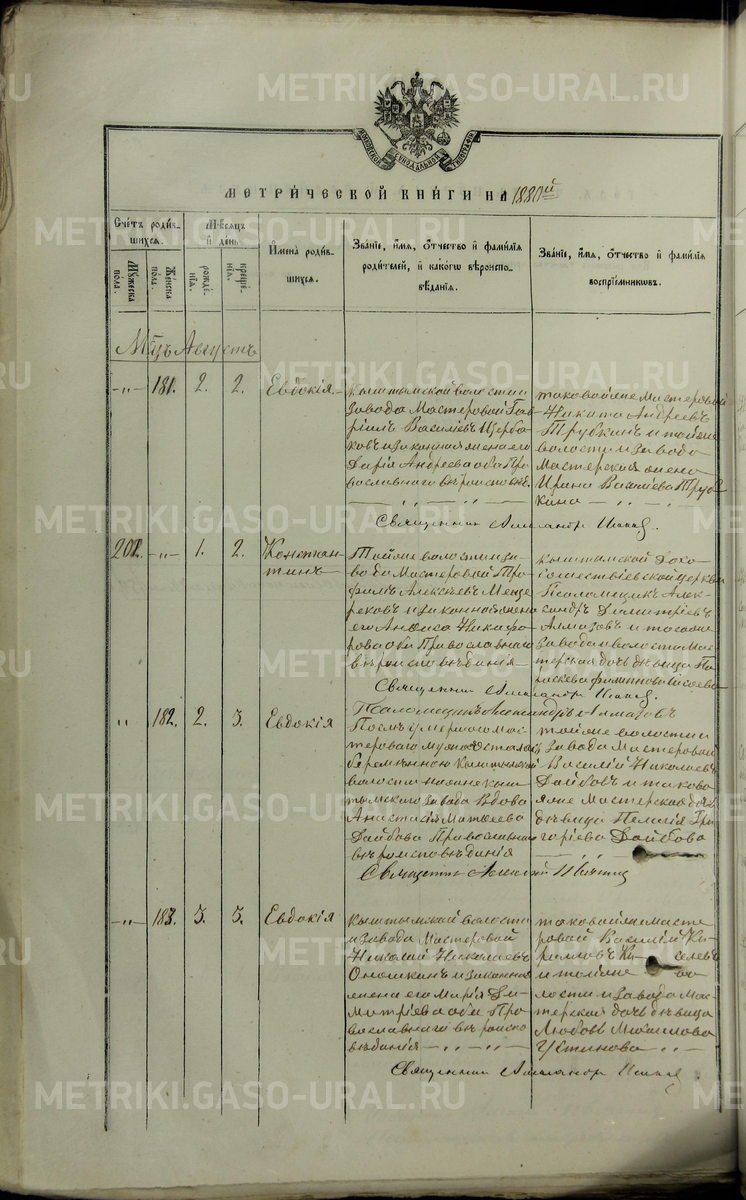 МЕТРИ́ЧЕСКОЙ КНИ́ГИ НА 1880й
Сче́тъ роди́в-
шихсѧ.
Мѣ́сѧцъ
и҆ де́нь
И҆мена̀ роди́в-
шихсѧ.
Зва́нїе, и҆́мѧ, ѻ҆́тчество и҆ фами́лїѧ
роди́телей, и҆ како́гѡ вѣроиспо-
вѣ́данїѧ.
Зва́нїе, и҆́мѧ, ѻ҆́тчество и҆ фами́лїѧ
воспрїе́мникѡвъ.
Мꙋ́жеска
по́ла.
Же́нска
по́ла.
рожде́-
нїѧ.
креще́-
нїѧ.
Мцъ Августъ
-„- 181. 2. 2. Евдокія.
Кыштымской волости
завода Мастеровой Гав-
ріилъ Василіевъ Щерба-
ковъ и законная жена его
Дарія Андреева оба Пра-
вославнаго вѣроисповѣд.
таковой же Мастеровой
Никита Андреевъ
Трубкинъ и той же
волости и завода
Мастерская жена
Ирина Василіева Труб-
кина
Священник Александр
201. -„- 1. 2. Констан-
тинъ
Той же волости и за-
вода Мастеровой Тро-
фимъ Алексѣевъ Меще-
ряковъ и законная жена
его Анѳиса Никифо-
рова оба Православнаго
вѣроисповѣданія
Кыштымской Духо-
сошествіевской церкви
Псаломщик Алек-
сандръ Димитріевъ
Алмазовъ и того же
завода и волости Мас-
терская дочь дѣвица Па-
раскева Филиппова
Священник Александр
Псаломщикъ Александръ Алмазовъ
„ 182. 2. 3. Евдокія
Послѣ умершаго мас-
тероваго мужа осталась
беременною Кыштымской
волости Нижне Кыш-
тымскаго завода Вдова
Анастасія Матѳеева
Дайбова Православнаго
вѣроисповѣданія
той же волости и
завода Мастеровой
Василій Николаевъ
Дайбовъ и таково-
я же Мастерская дочь
дѣвица Пелагія Гри-
горіева Дайбова
Священникъ
-„- 183. 3. 3. Евдокія
Кыштымской волости
и завода Мастеровой
Николай Николаевъ
Оношкинъ и законная
жена его Марія Ди-
митріева оба Пра-
вославнаго вѣроиспо
вѣданія
таковой же масте-
ровой Василій Ки-
рилловъ Ки- селевъ
и той же во-
лости и завода Мас-
терская дочь дѣвица
Любовь
Устинова
Священник Александр
METRIKI.GASO-URAL.RU